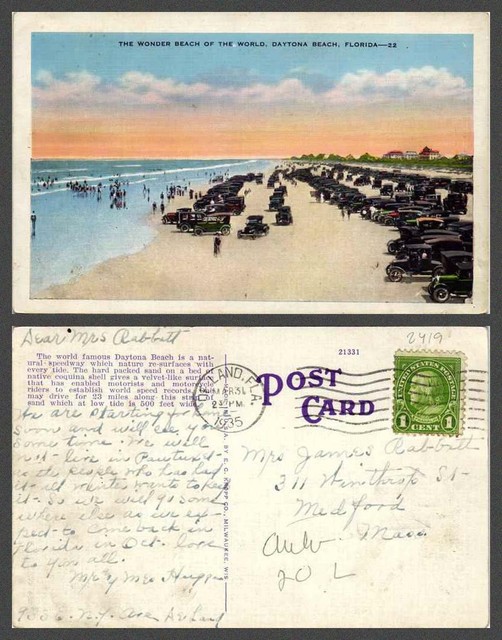 THE WONDER BEACH OF THE WORLD, DAYTONA BEACH, FLORIDA—22
Dear Mrs Rabbitt
The world famous Daytona Beach is a nat-
ural speedway which nature re-surfaces with
every tide. The hard packed sand on a bed of
native coquina shell gives a velvet-like surface
that has enabled motorists and motorcycle
riders to establish world speed records.
may drive for 23 miles along this
sand which at low tide is 500 feet wide.
We are starting
soon and will see you
some time. We will
not live in Pawtucket
as the people who has had
it all winter wants to keep
it. So we will go some
where else as we ex-
pect to come back in
Florida in Oct. love
to you all.
Mr & Mrs
N.Y. Ave DeLand
E. C. KROPP CO., MILWAUKEE, WIS.
21331
2419
POST
CARD
DELAND, FLA.
2 PM
1935
UNITED STATES POSTAGE
1 CENT 1
Mrs James Rabbitt
311 Winthrop St-
Medford
Mass
20 L